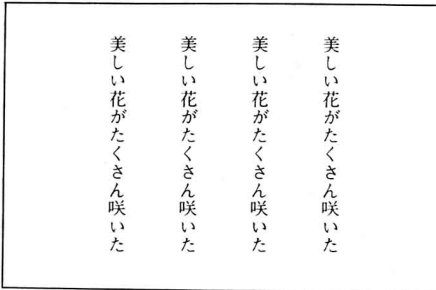 美しい花がたくさん咲いた
美しい花がたくさん咲いた
美しい花がたくさん咲いた
美しい花がたくさん咲いた